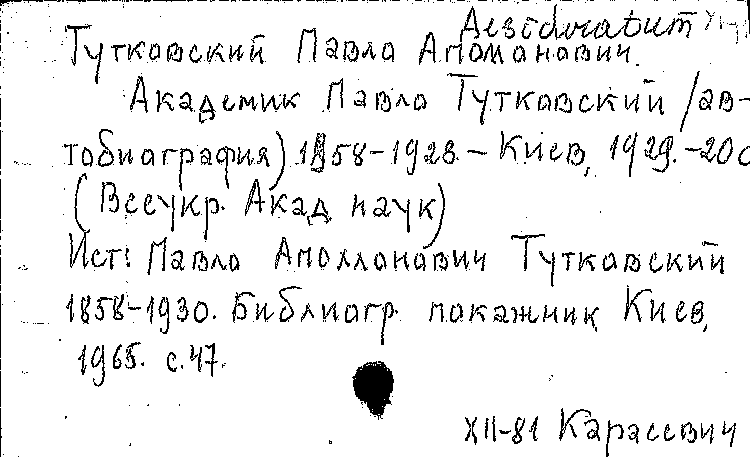 Desideratum
Тутковский Павло Аполонович.
Академик Павло Тутковский /ав-
тобиография) 1858-1928. - Киев, 1929. - 20с
(Всеукр. Акад. наук)
Ист: Павло Аполлонович Тутковский
1858-1930. Библиогр. покажчик Киев,
1965. с.47.
XII-81 Карасевич